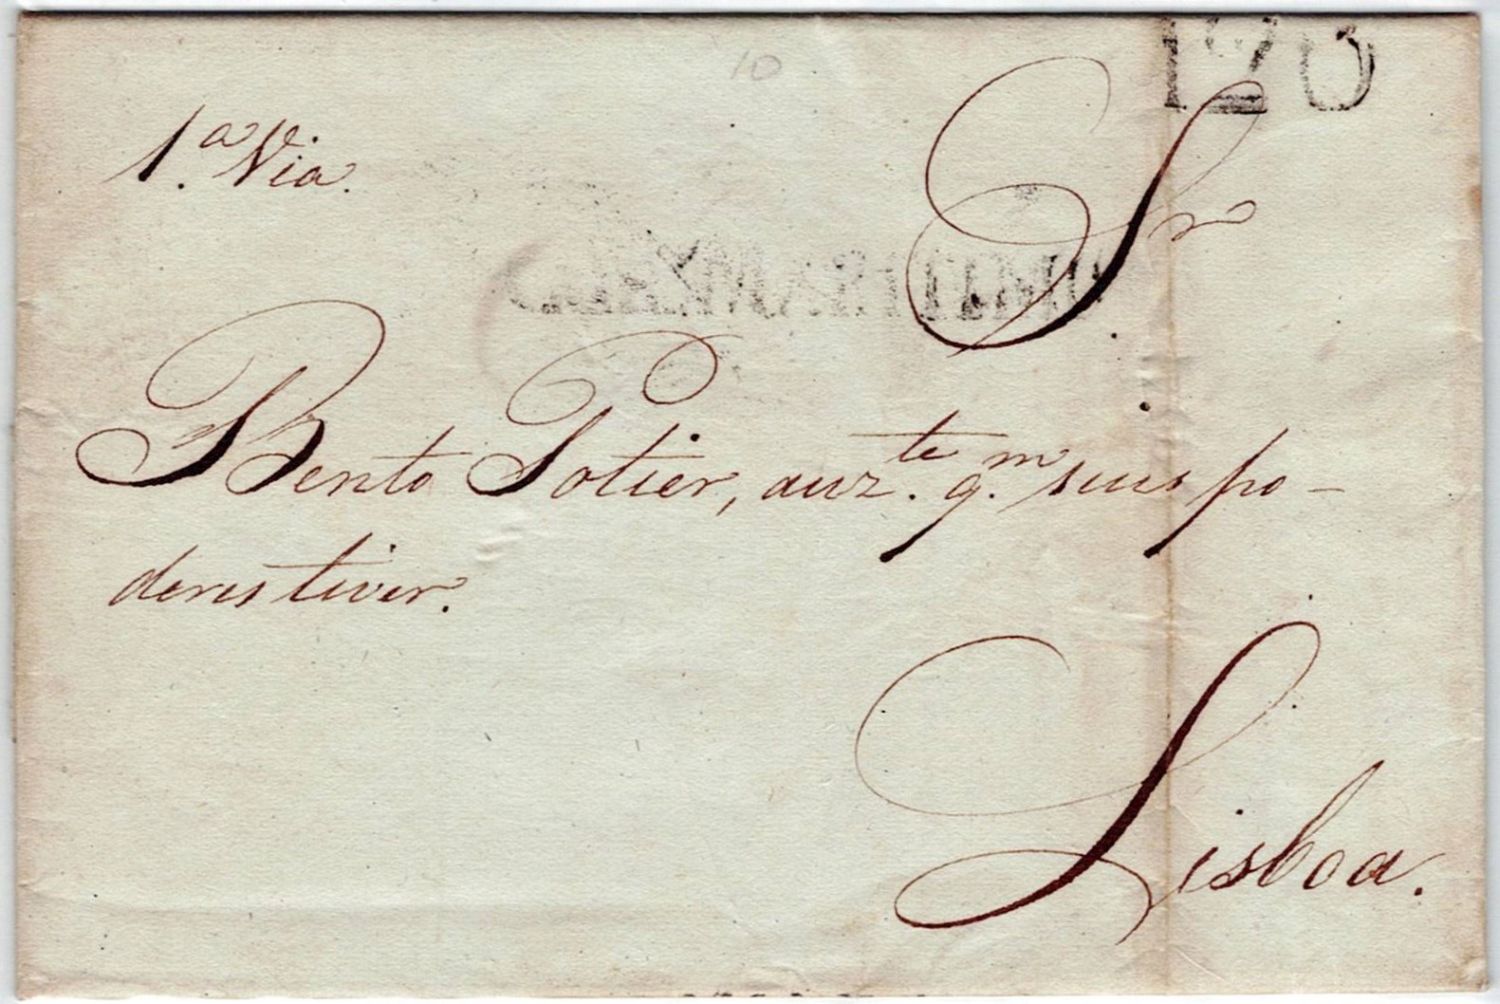 10
120
1.ª Via.
Sr.
Bento Potier, auz.te q.m seus po-
deres tiver.
Lisboa.